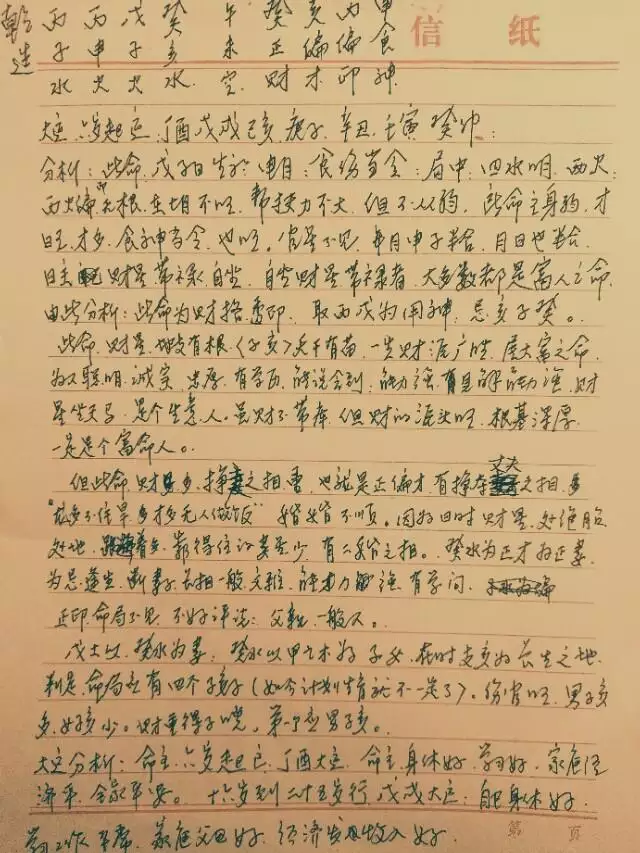 乾 丙 丙 戊 癸 午 癸亥丙申
造 子 申 子 亥 未 正偏偏食
水 火 火 水 空 财才印神
信纸
大运 六岁起运 丁酉 戊戌 己亥 庚子 辛丑 壬寅 癸卯：
分析：此命 戊子日生于申月：食伤当令：局中 四水明 两火
丙火偏印无根 生身不旺 帮扶力不大 但不从弱 此命主身弱 才
旺 才多 食神当令 也旺。官星不见 年月申子半合 月日也半合
日主 财星带禄自坐 自坐财星带禄者 大多数都是富人之命
由此分析：此命为财 印 取丙戊为用神：忌亥子癸。
此命 财星 地支有根〈子亥〉天干有苗 一生财源广进 属大富之命
为人聪明 诚实 忠厚 有学历 能说会到 能力强 有见解 能力强 财
星坐 是个生意人。虽财不带库 但财的源头旺 根基深厚
一定是个富命人。
但此命 财多 争妻之相 重 也就是正偏才 有争夺丈夫之相 多
“龙多不住旱 多才多无人做饭” 婚姻不顺。因为四时财星 处绝胎
处地 靠得住的妻星少 有二婚之相。癸水为正才为正妻
为忌 逢生 断妻子 长相一般 文雅 能力强 有学问
正印命局不见 不好评说：父亲一般人。
戊土以癸水为妻：癸水以甲乙木为子女 在时支亥为长生之地
判定命局应有四个孩子（如今计划生育就不一定了）。伤官旺 男孩
多 女孩少。财重得子晚，第一个应男孩。
大运分析：命主 六岁起运 丁酉大运 命主 身体好 学习好 家庭经
济平 全家平安。 十六岁到二十五岁行 戊戌大运： 身体好
学习工作 平常 家庭父母好 经济 收入好
第 页